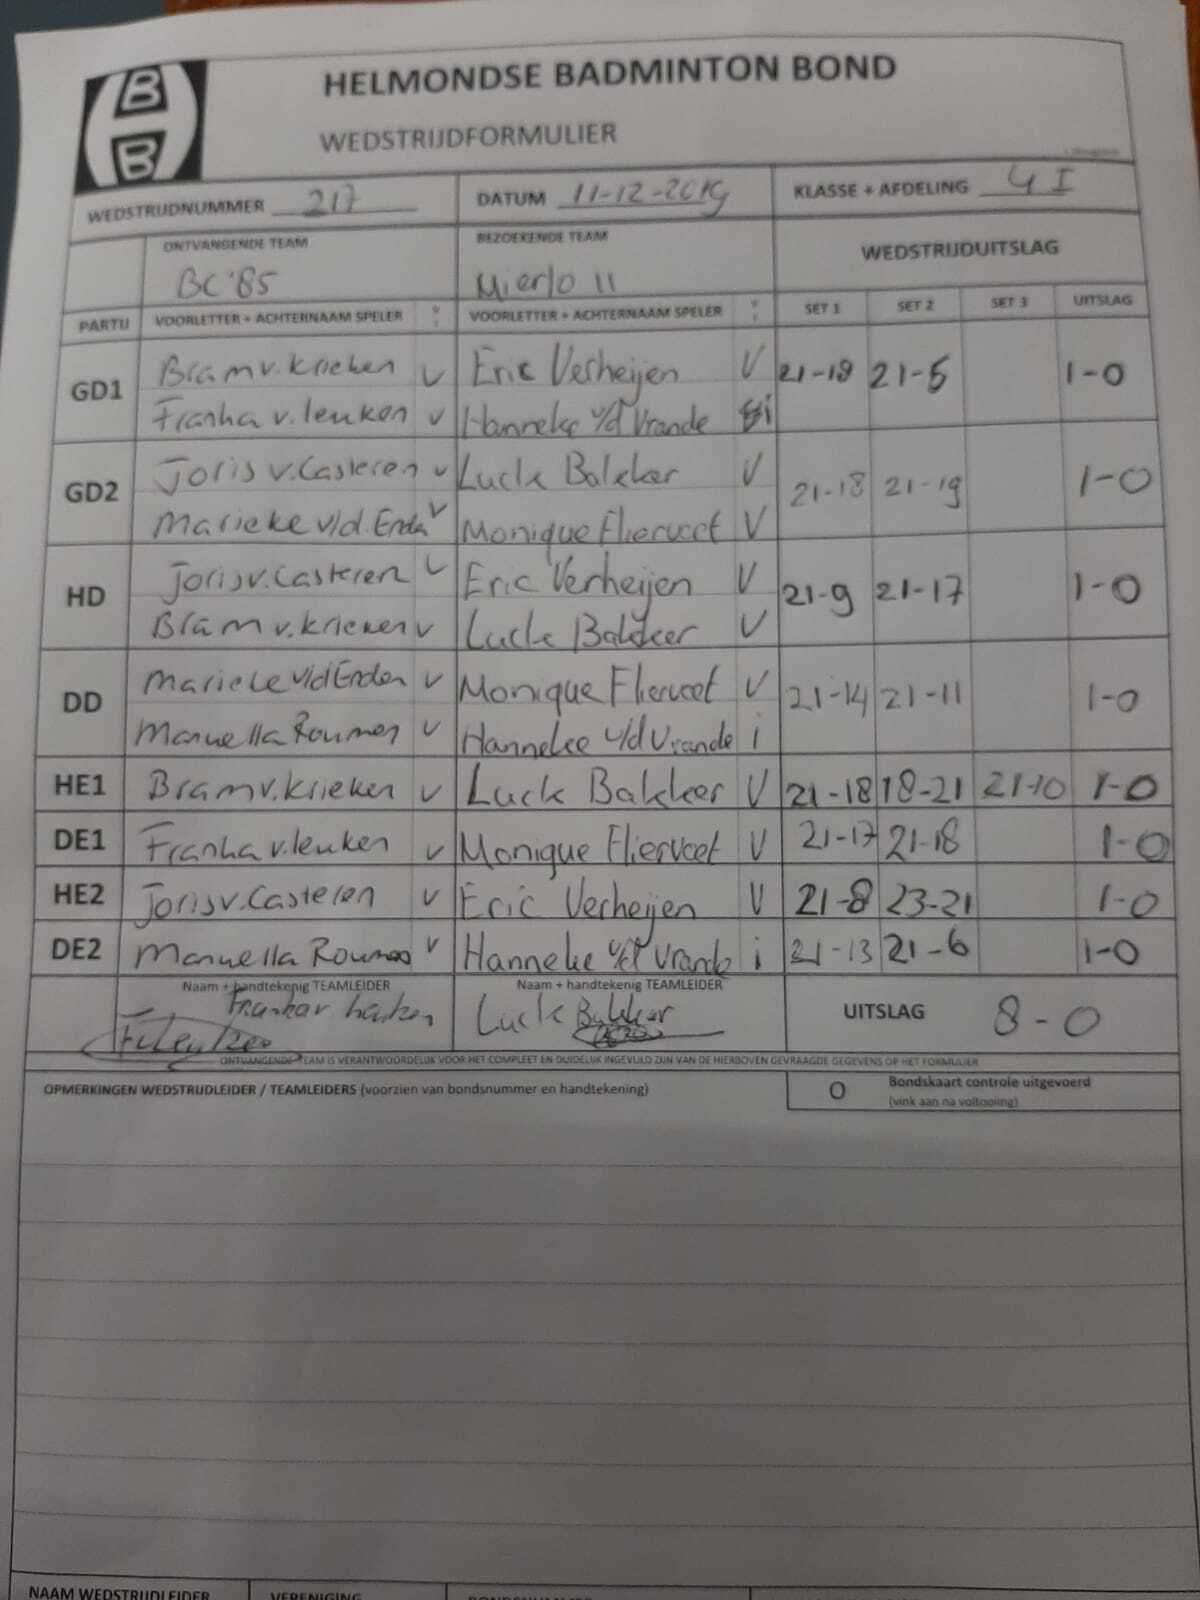 B
B
HELMONDSE BADMINTON BOND
WEDSTRIJDFORMULIER
WEDSTRIJDNUMMER 217 DATUM 11-12-2019 KLASSE + AFDELING 4 I
ONTVANGENDE TEAM BEZOEKENDE TEAM WEDSTRIJDUITSLAG
BC '85 Mierlo 11
PARTIJ VOORLETTER + ACHTERNAAM SPELER V I VOORLETTER + ACHTERNAAM SPELER V I SET 1 SET 2 SET 3 UITSLAG
GD1 Bram v. Krieken V Eric Verheijen V 21-18 21-5 1-0
Franka v. leuken V Hanneke v/d Vrande i
GD2 Joris v. Casteren V Luck Bakker V 21-18 21-19 1-0
Marieke v/d. Enden V Monique Fliervoet V
HD Joris v. Casteren V Eric Verheijen V 21-9 21-17 1-0
Bram v. Krieken V Luck Bakker V
DD Marieke v/d Enden V Monique Fliervoet V 21-14 21-11 1-0
Manuella Roumen V Hanneke v/d Vrande i
HE1 Bram v. Krieken V Luck Bakker V 21-18 18-21 21-10 1-0
DE1 Franka v. leuken V Monique Fliervoet V 21-17 21-18 1-0
HE2 Joris v. Casteren V Eric Verheijen V 21-8 23-21 1-0
DE2 Manuella Roumen V Hanneke v/d Vrande i 21-13 21-6 1-0
Naam + handtekenig TEAMLEIDER Naam + handtekenig TEAMLEIDER UITSLAG 8-0
Luck Bakker
ONTVANGENDE TEAM IS VERANTWOORDELIJK VOOR HET COMPLEET EN DUIDELIJK INGEVULD ZIJN VAN DE HIERBOVEN GEVRAAGDE GEGEVENS OP HET FORMULIER
OPMERKINGEN WEDSTRIJDLEIDER / TEAMLEIDERS (voorzien van bondsnummer en handtekening) O Bondskaart controle uitgevoerd
(vink aan na voltooiing)
NAAM WEDSTRIJDLEIDER VERENIGING BONDSNUMMER